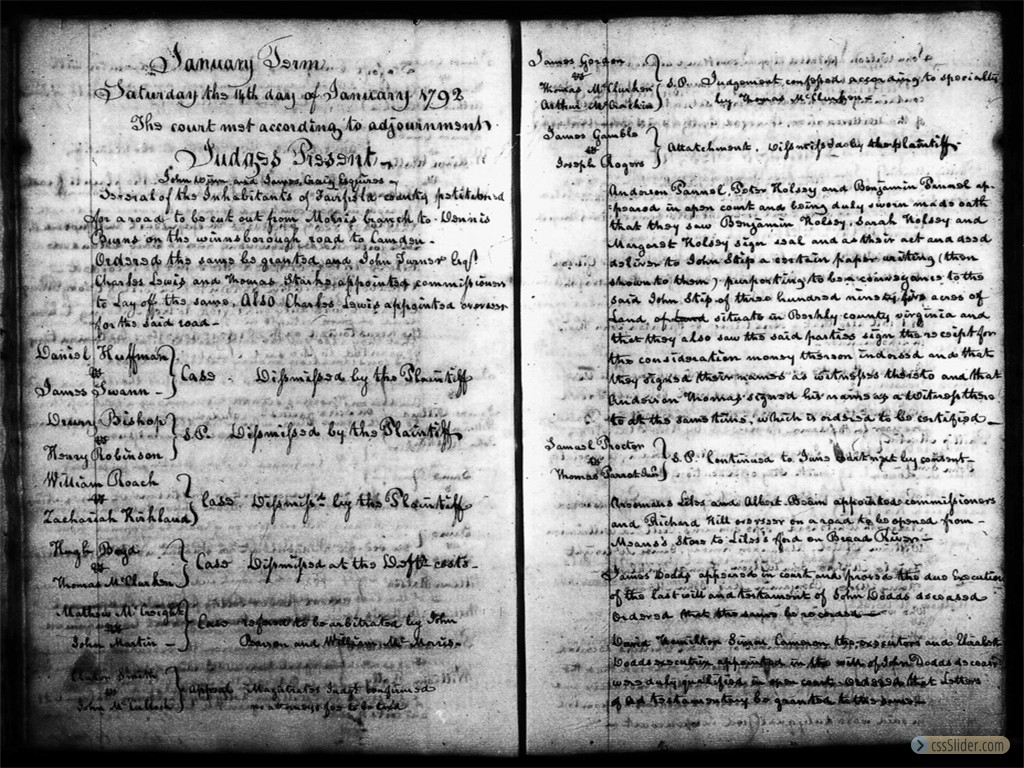 January Term
Saturday the 14th day of January 1792
The court met according to adjournment
Judges Present
John Winn and James Craig Esquires
Several of the Inhabitants of Fairfield county petitioned
for a road to be cut out from Mobris branch to Dennis
Burns on the winnsborough road to Camden
Ordered the same be granted and John Turner Esqr
Charles Lewis and Thomas Starke appointed commissioners
to Lay off the same, Also Charles Lewis appointed overseer
for the said road
Daniel Huffman
vs
James Swann
Case Dismissed by the Plaintiff
Drury Bishop
vs
Henry Robinson
S.P. Dismissed by the Plaintiff
William Roach
vs
Zachariah Kirkland
Case Dismisst by the Plaintiff
Hugh Boyd
vs
Thomas McClurken
Case Dismissed at the Defts costs
Mathew McCreight
vs
John Martin
Case referd to be arbitrated by John
Barron and William Mc Morris
Smith
vs
John McCulloch
Appeal Magistrates Judgt confirmed
no attorneys fee to be taxd
James Gordon
vs
Thomas McClurken
Arthur McCrachin
S.P. Judgement confessed according to specialty
by Thomas McClurken
James Gamble
vs
Joseph Rogers
Attachment. Dismissed by the plaintiff
Anderson Pannel, Peter Holsey and Benjamin Pannel ap-
peared in open court and being duly sworn made oath
that they saw Benjamin Holsey, Sarah Holsey and
Margaret Holsey sign seal and as their act and deed
deliver to John Stip a certain paper writing (then
shown to them) purporting to be a conveyance to the
said John Stip of three hundred ninety five acres of
Land situate in Berkly county virginia and
that they also saw the said parties sign the receipt for
the consideration money thereon indorsed and that
they signed their names as witnesses thereto and that
Anderson Thomas signed his name as a Witness there
to at the same time, which is ordered to be certified
Samuel Proctor
vs
Thomas Parrot
S.P. Continued to June next by consent
Aromanus Liles and Albert Beam appointed commissioners
and Richard Hill overseer on a road to be opened from
Means's Store to Liles's ford on Broad River
James Dodds appeared in court and proved the due Execution
of the last will and testament of John Dodds deceased
ordered that the same be recorded
David Hamilton Simon Cameron the executors and Elizabeth
Dodds executrix appointed in the will of John Dodds deceasd
were duly qualified in open court ordered that Letters
testamentory be granted to the same
cssSlider.com